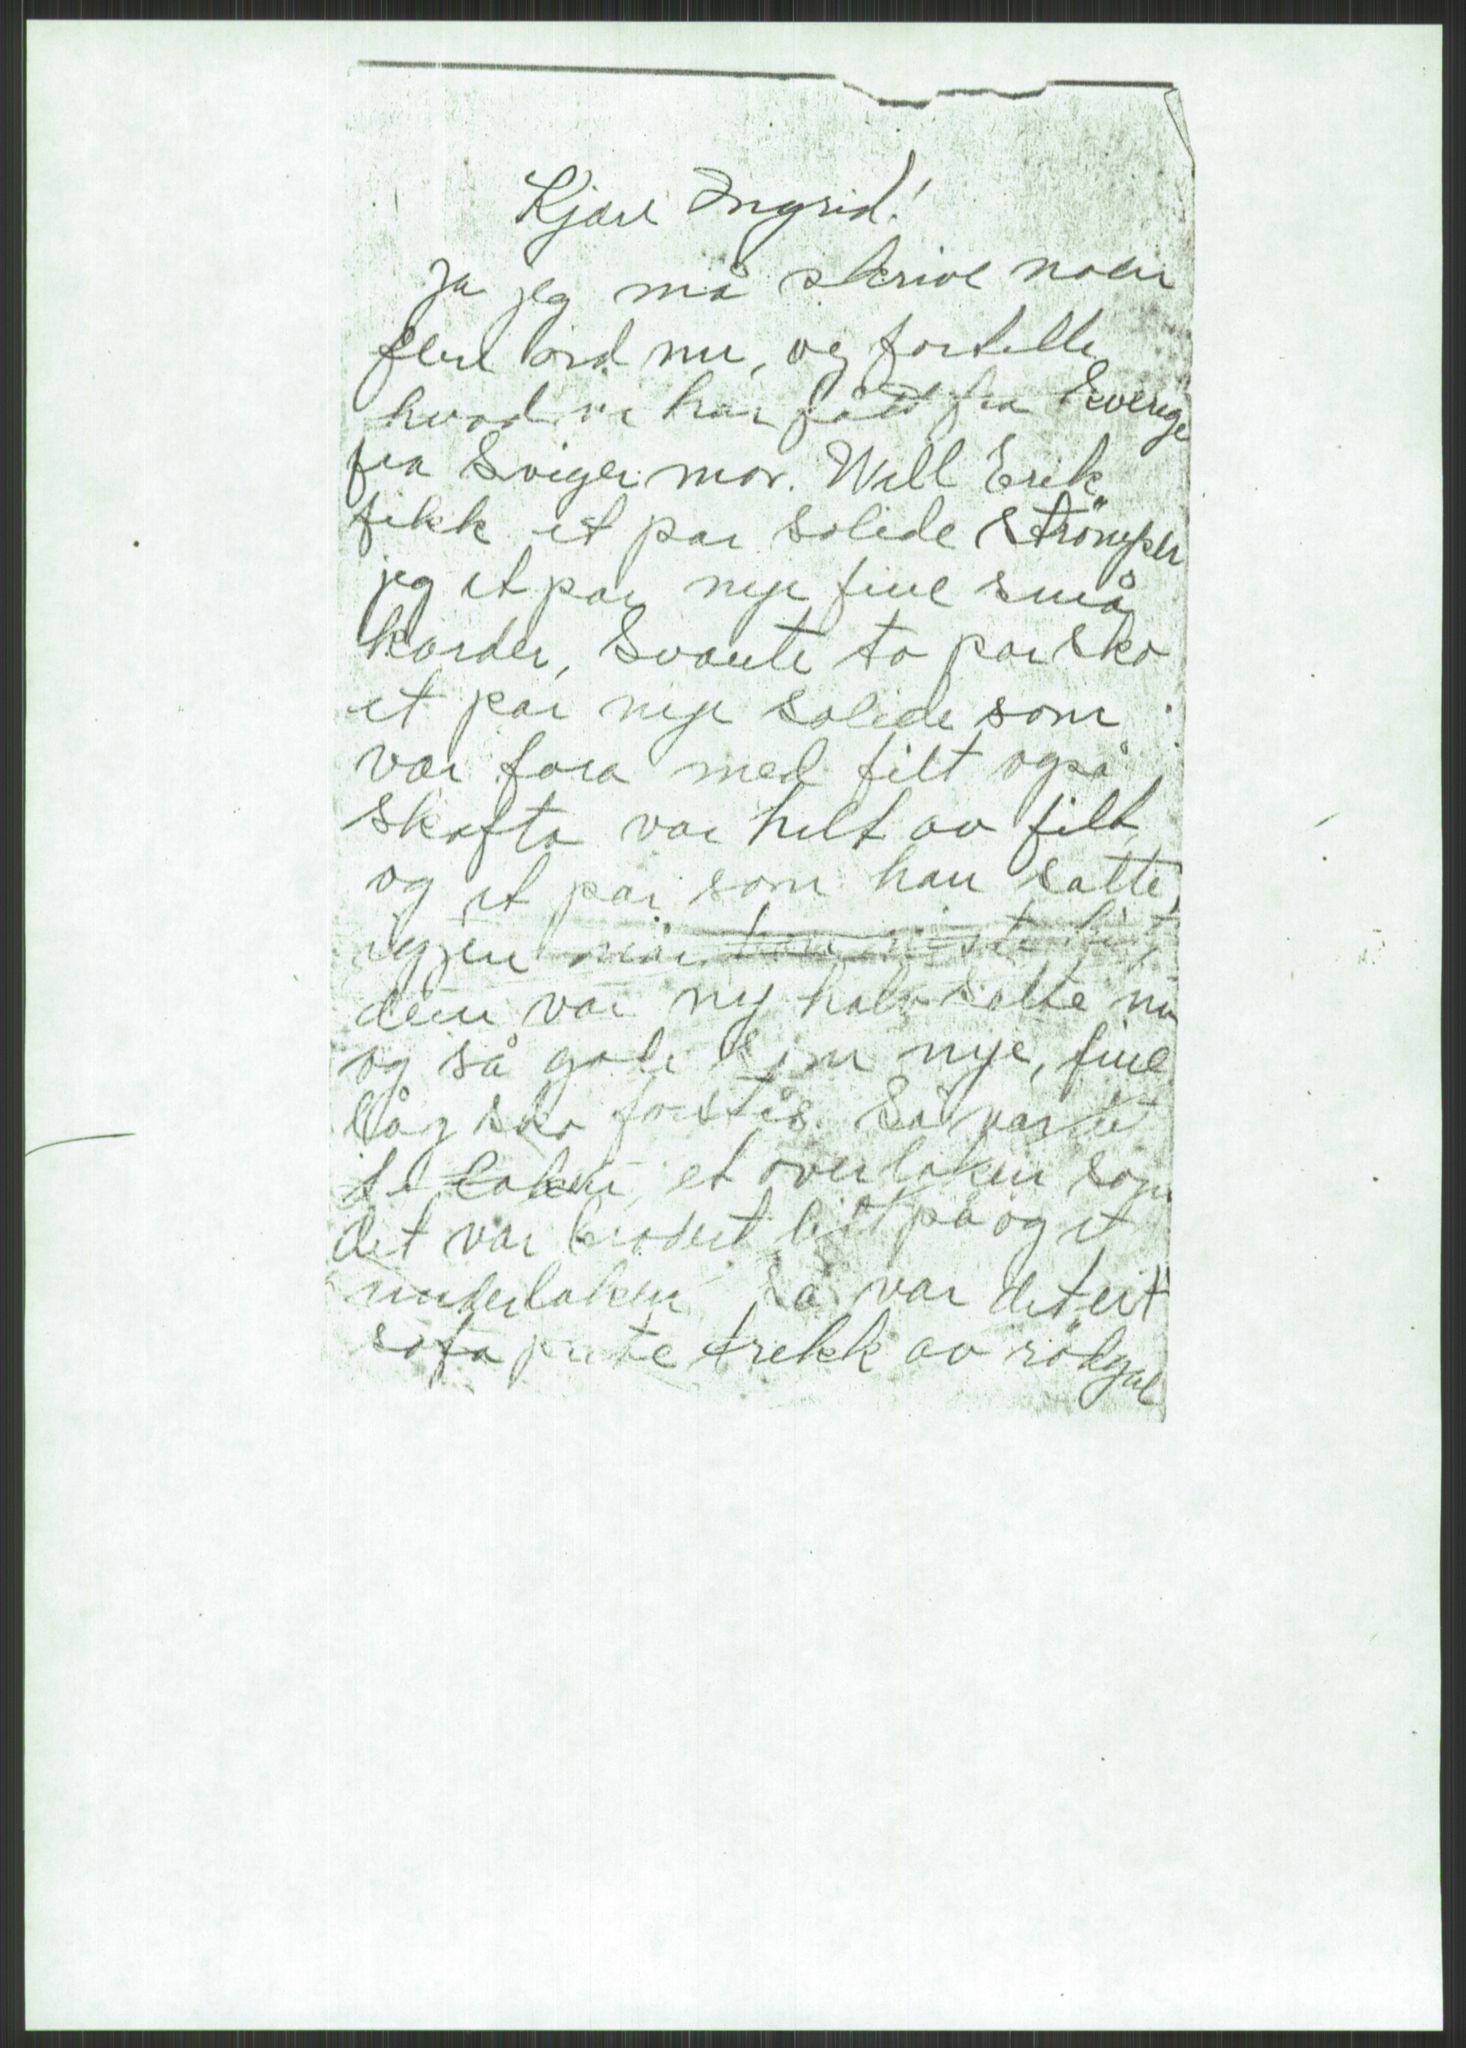 Kjære Ingrid!
Ja jeg må skrive noen
flere ord nu, og fortelle
hvad vi har fått fra Sverige
fra Sviger mor. Well Erik
fikk et par solide strömper
jeg et par nye fine små
Svante to par sko
et par nye solide som
var fora med filt også
skafta var helt av filt
og et par som han satte
igjen når han reiste hit,
dem var ny halvsålte nu
og så gode som nye, fine
låg sko forstås. Så var det
to laken, et overlaken som
det var brodert litt på og et
underlaken Så var det eit
sofa pute trekk av rödgul